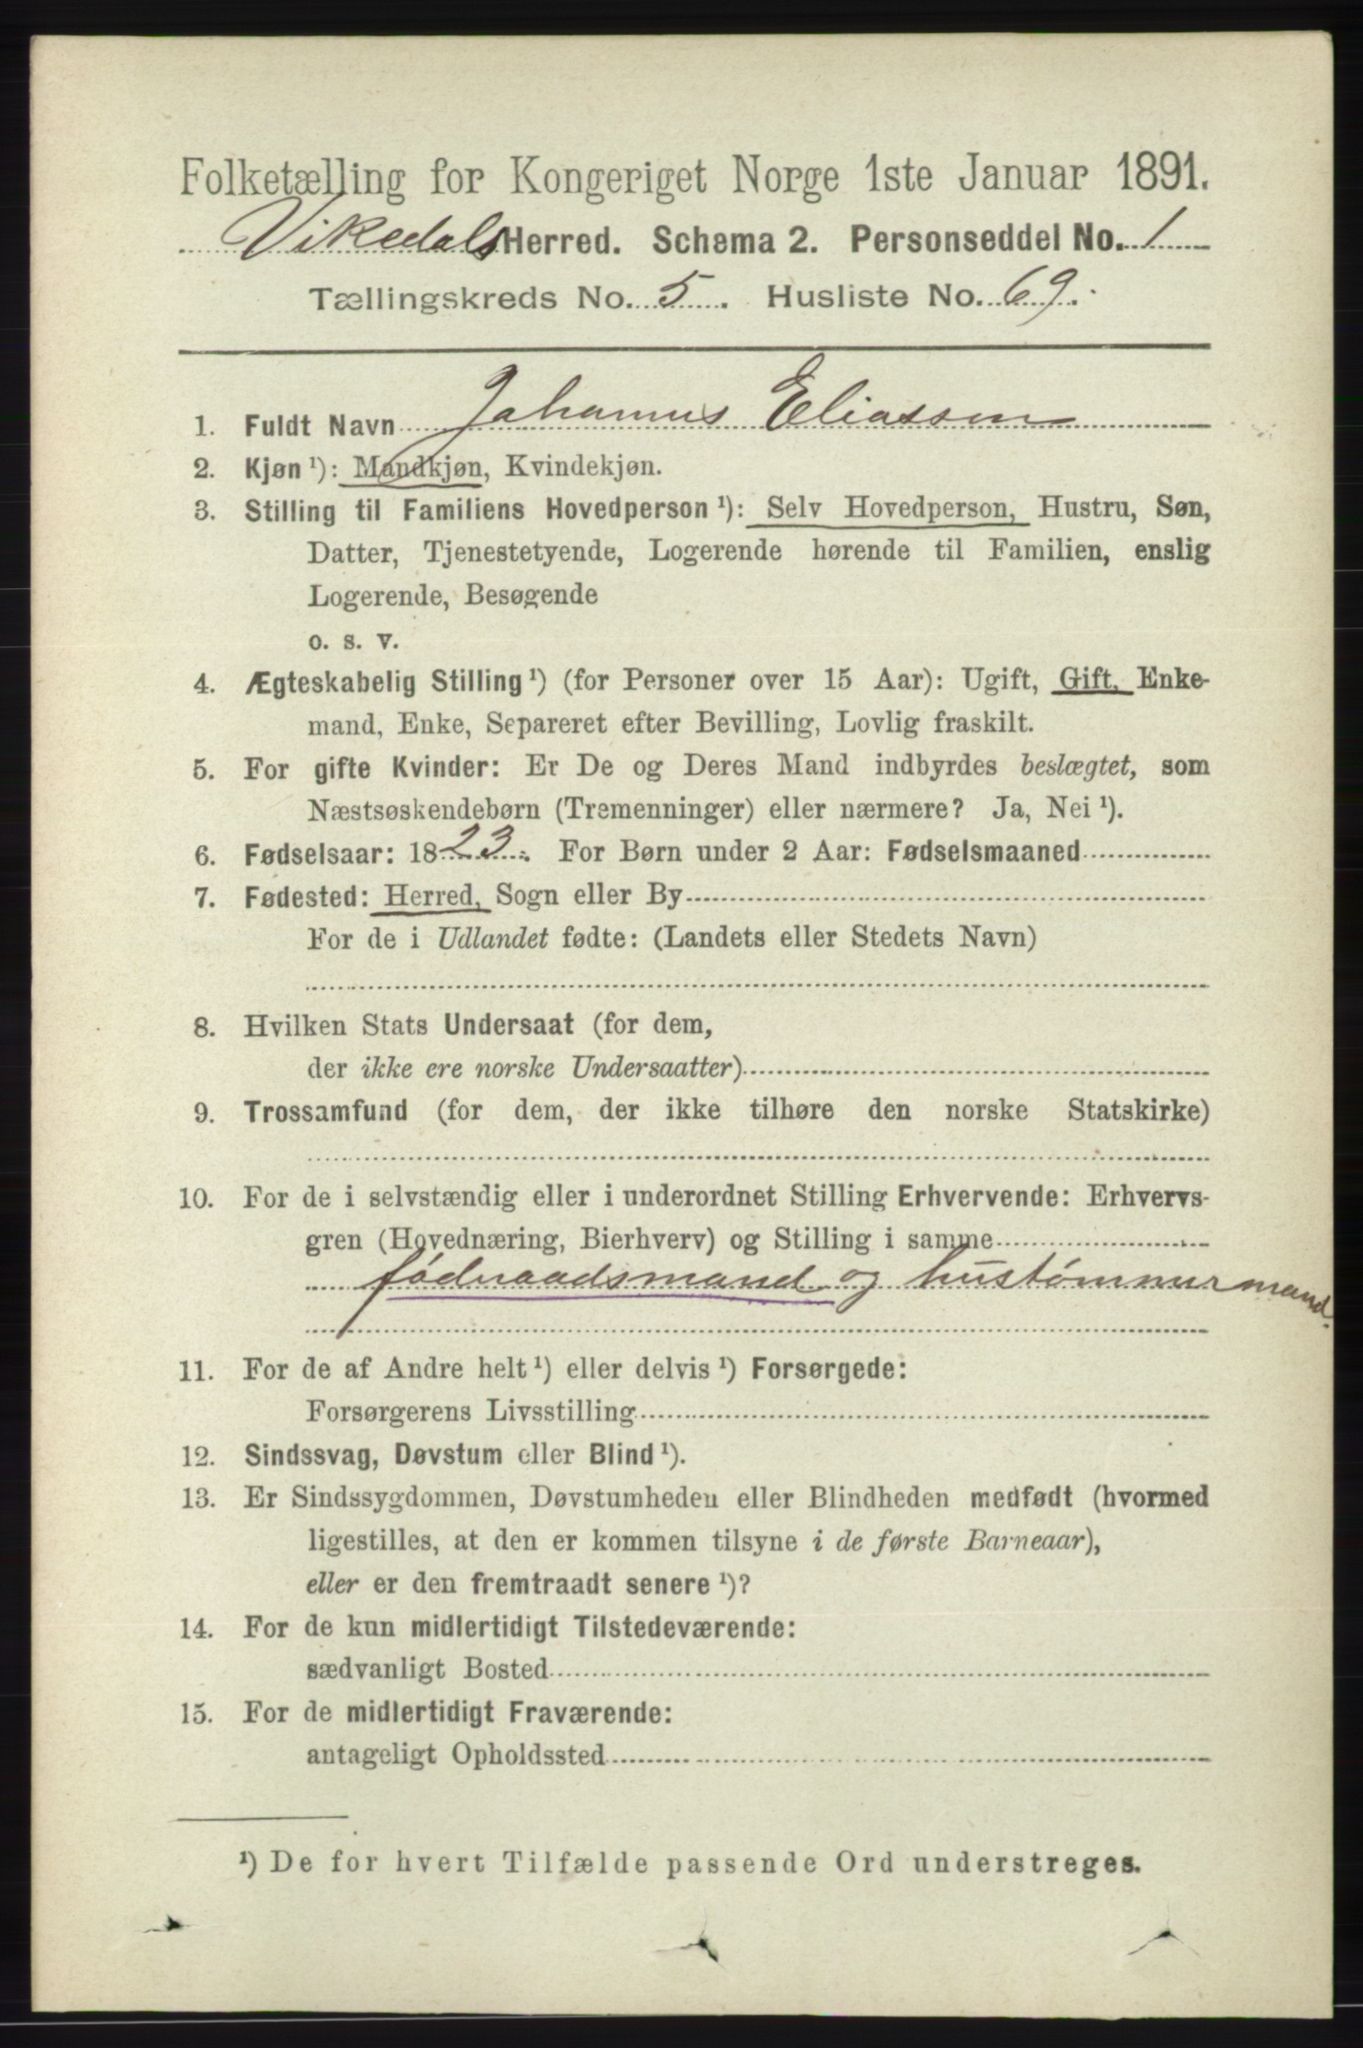 Folketælling for Kongeriget Norge 1ste Januar 1891.
Vikedals Herred. Schema 2. Personseddel No. 1
Tællingskreds No. 5. Husliste No. 69.
1. Fuldt Navn Johannes Eliassen
2. Kjøn ¹): Mandkjøn, Kvindekjøn.
3. Stilling til Familiens Hovedperson ¹): Selv Hovedperson, Hustru, Søn,
Datter, Tjenestetyende, Logerende hørende til Familien, enslig
Logerende, Besøgende
o. s. v.
4. Ægteskabelig Stilling ¹) (for Personer over 15 Aar): Ugift, Gift, Enke-
mand, Enke, Separeret efter Bevilling, Lovlig fraskilt.
5. For gifte Kvinder: Er De og Deres Mand indbyrdes beslægtet, som
Næstsøskendebørn (Tremenninger) eller nærmere? Ja, Nei ¹).
6. Fødselsaar: 1823. For Børn under 2 Aar: Fødselsmaaned
7. Fødested: Herred, Sogn eller By
For de i Udlandet fødte: (Landets eller Stedets Navn)
8. Hvilken Stats Undersaat (for dem,
der ikke ere norske Undersaatter)
9. Trossamfund (for dem, der ikke tilhøre den norske Statskirke)
10. For de i selvstændig eller i underordnet Stilling Erhvervende: Erhvervs-
gren (Hovednæring, Bierhverv) og Stilling i samme
födraadsmand og hustømmermand.
11. For de af Andre helt ¹) eller delvis ¹) Forsørgede:
Forsørgerens Livsstilling
12. Sindssvag, Døvstum eller Blind ¹).
13. Er Sindssygdommen, Døvstumheden eller Blindheden medfødt (hvormed
ligestilles, at den er kommen tilsyne i de første Barneaar),
eller er den fremtraadt senere ¹)?
14. For de kun midlertidigt Tilstedeværende:
sædvanligt Bosted
15. For de midlertidigt Fraværende:
antageligt Opholdssted
¹) De for hvert Tilfælde passende Ord understreges.